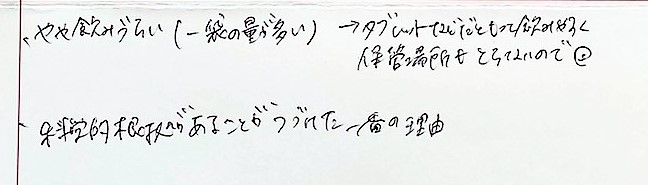 ・やや飲みづらい(一袋の量が多い) →タブレットなどだともっと飲みやすく
保管場所もとらないので◎
・科学的根拠があることがつづけた一番の理由